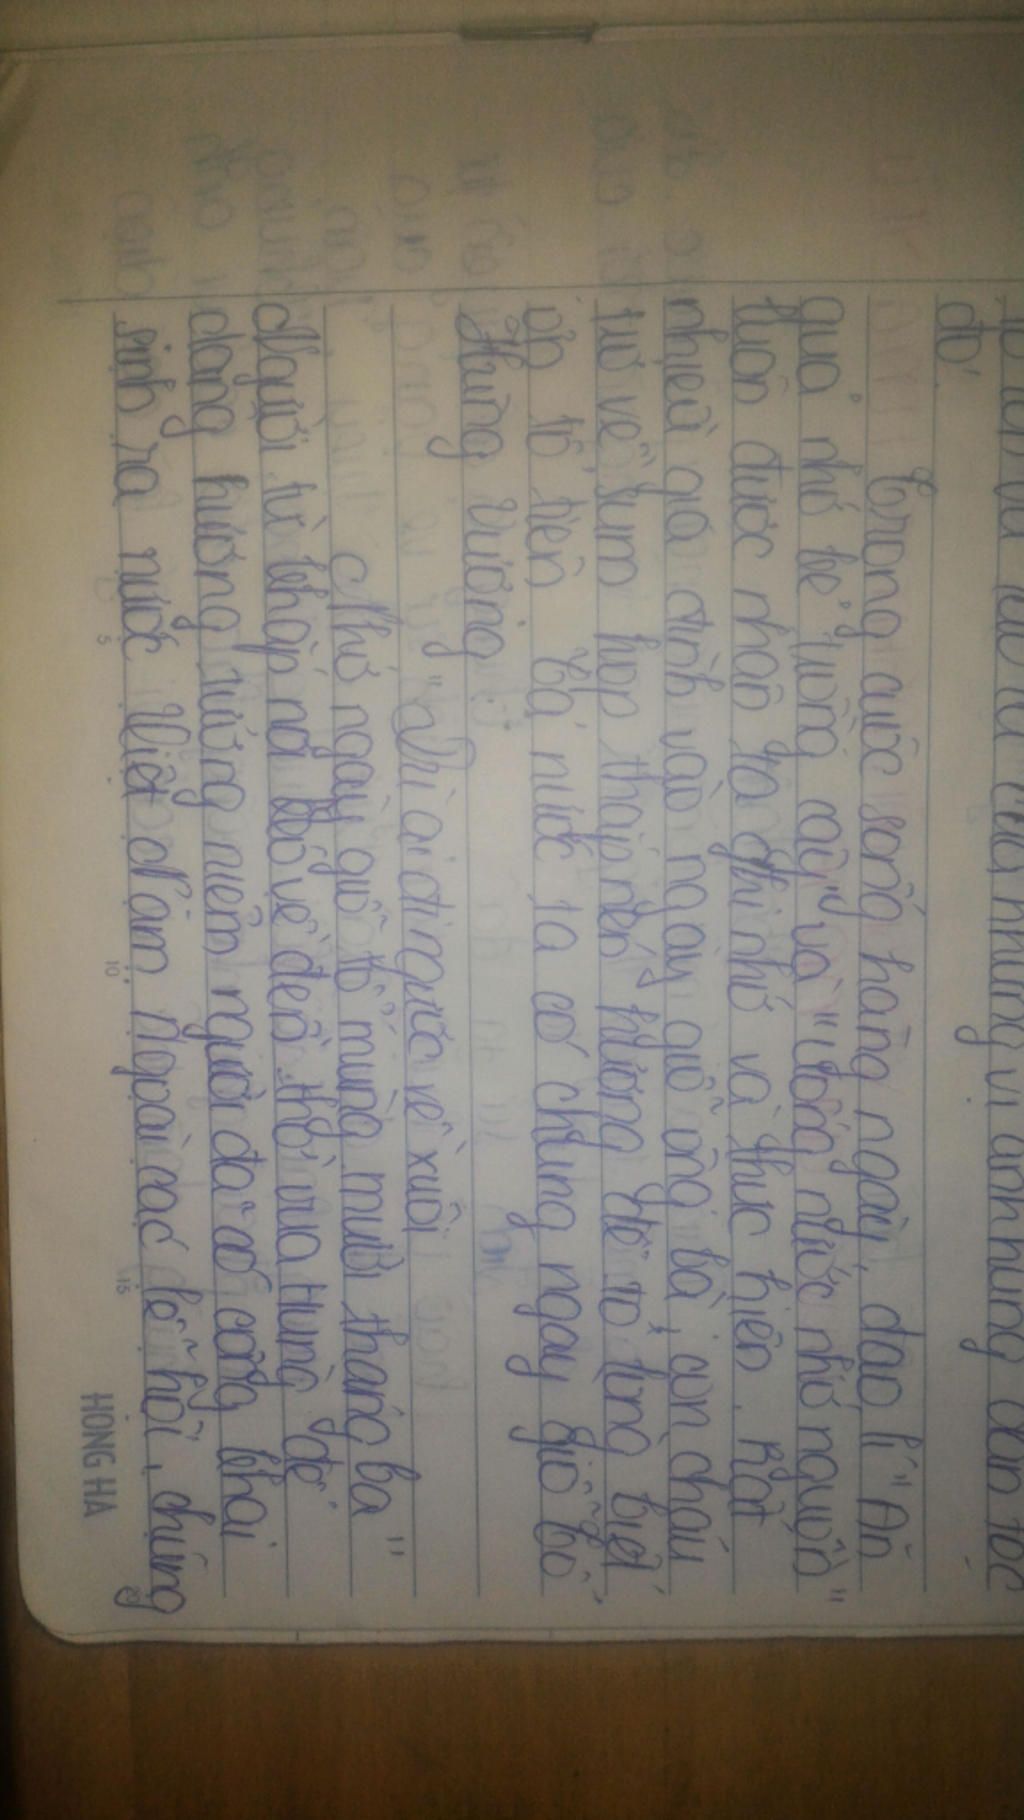 tổ tiên và các vị anh hùng dân tộc
đó.
Trong cuộc sống hằng ngày, đạo lí "Ăn
quả nhớ kẻ trồng cây" và "Uống nước nhớ nguồn"
luôn được nhân ta ghi nhớ và thực hiện. Rất
nhiều gia đình vào ngày giỗ ông bà, con cháu
tụ về sum họp thắp nén hương để tỏ lòng biết
ơn tổ tiên. Cả nước ta có chung ngày giỗ tổ
Hùng Vương
"Dù ai đi ngược về xuôi
Nhớ ngày giỗ tổ mùng mười tháng ba"
Người từ khắp nơi đổ về đền thờ vua Hùng để
dâng hương tưởng niệm người đã có công khai
sinh ra nước Việt Nam. Ngoài các lễ hội, chúng
HONG HA
5
10
15
20